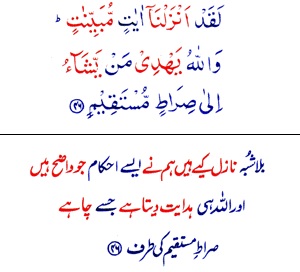 لَقَدْ اَنْزَلْنَاۤ اٰيٰتٍ مُّبَيِّنٰتٍ ؕ
وَاللّٰهُ يَهْدِىْ مَنْ يَّشَآءُ
اِلٰى صِرَاطٍ مُّسْتَقِيْمٍ ﴿۴۶﴾
بلاشُبہ نازل کیے ہیں ہم نے ایسے احکام جو واضح ہیں
اور اللہ ہی ہدایت دیتا ہے جسے چاہے
صراطِ مستقیم کی طرف ﴿۴۶﴾